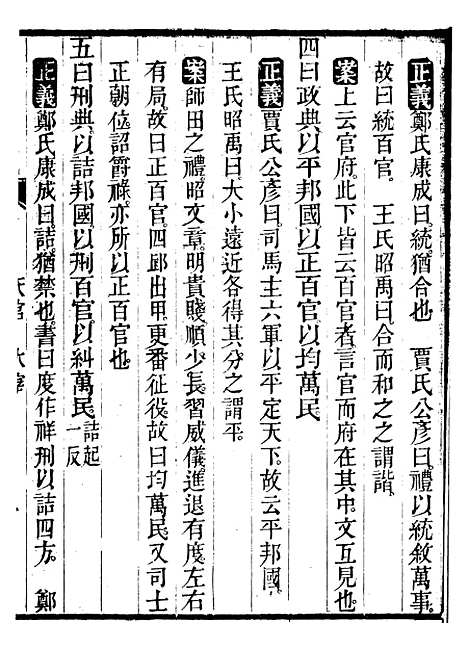 正義鄭氏康成曰統猶合也　賈氏公彥曰禮以統敘萬事
故曰統百官　王氏昭禹曰合而和之之謂諧
案上云官府此下皆云百官者言官而府在其中文互見也
四曰政典以平邦國以正百官以均萬民
正義賈氏公彥曰司馬主六軍以平定天下故云平邦國
王氏昭禹曰大小遠近各得其分之謂平
案師田之禮昭文章明貴賤順少長習威儀進退有度左右
有局故曰正百官四郵出甲更番征役故曰均萬民又司士
正朝位詔爵祿亦所以正百官也
五曰刑典以詰邦國以刑百官以糾萬民詰起一反
正義鄭氏康成曰詰猶禁也書曰度作祥刑以詰四方　鄭